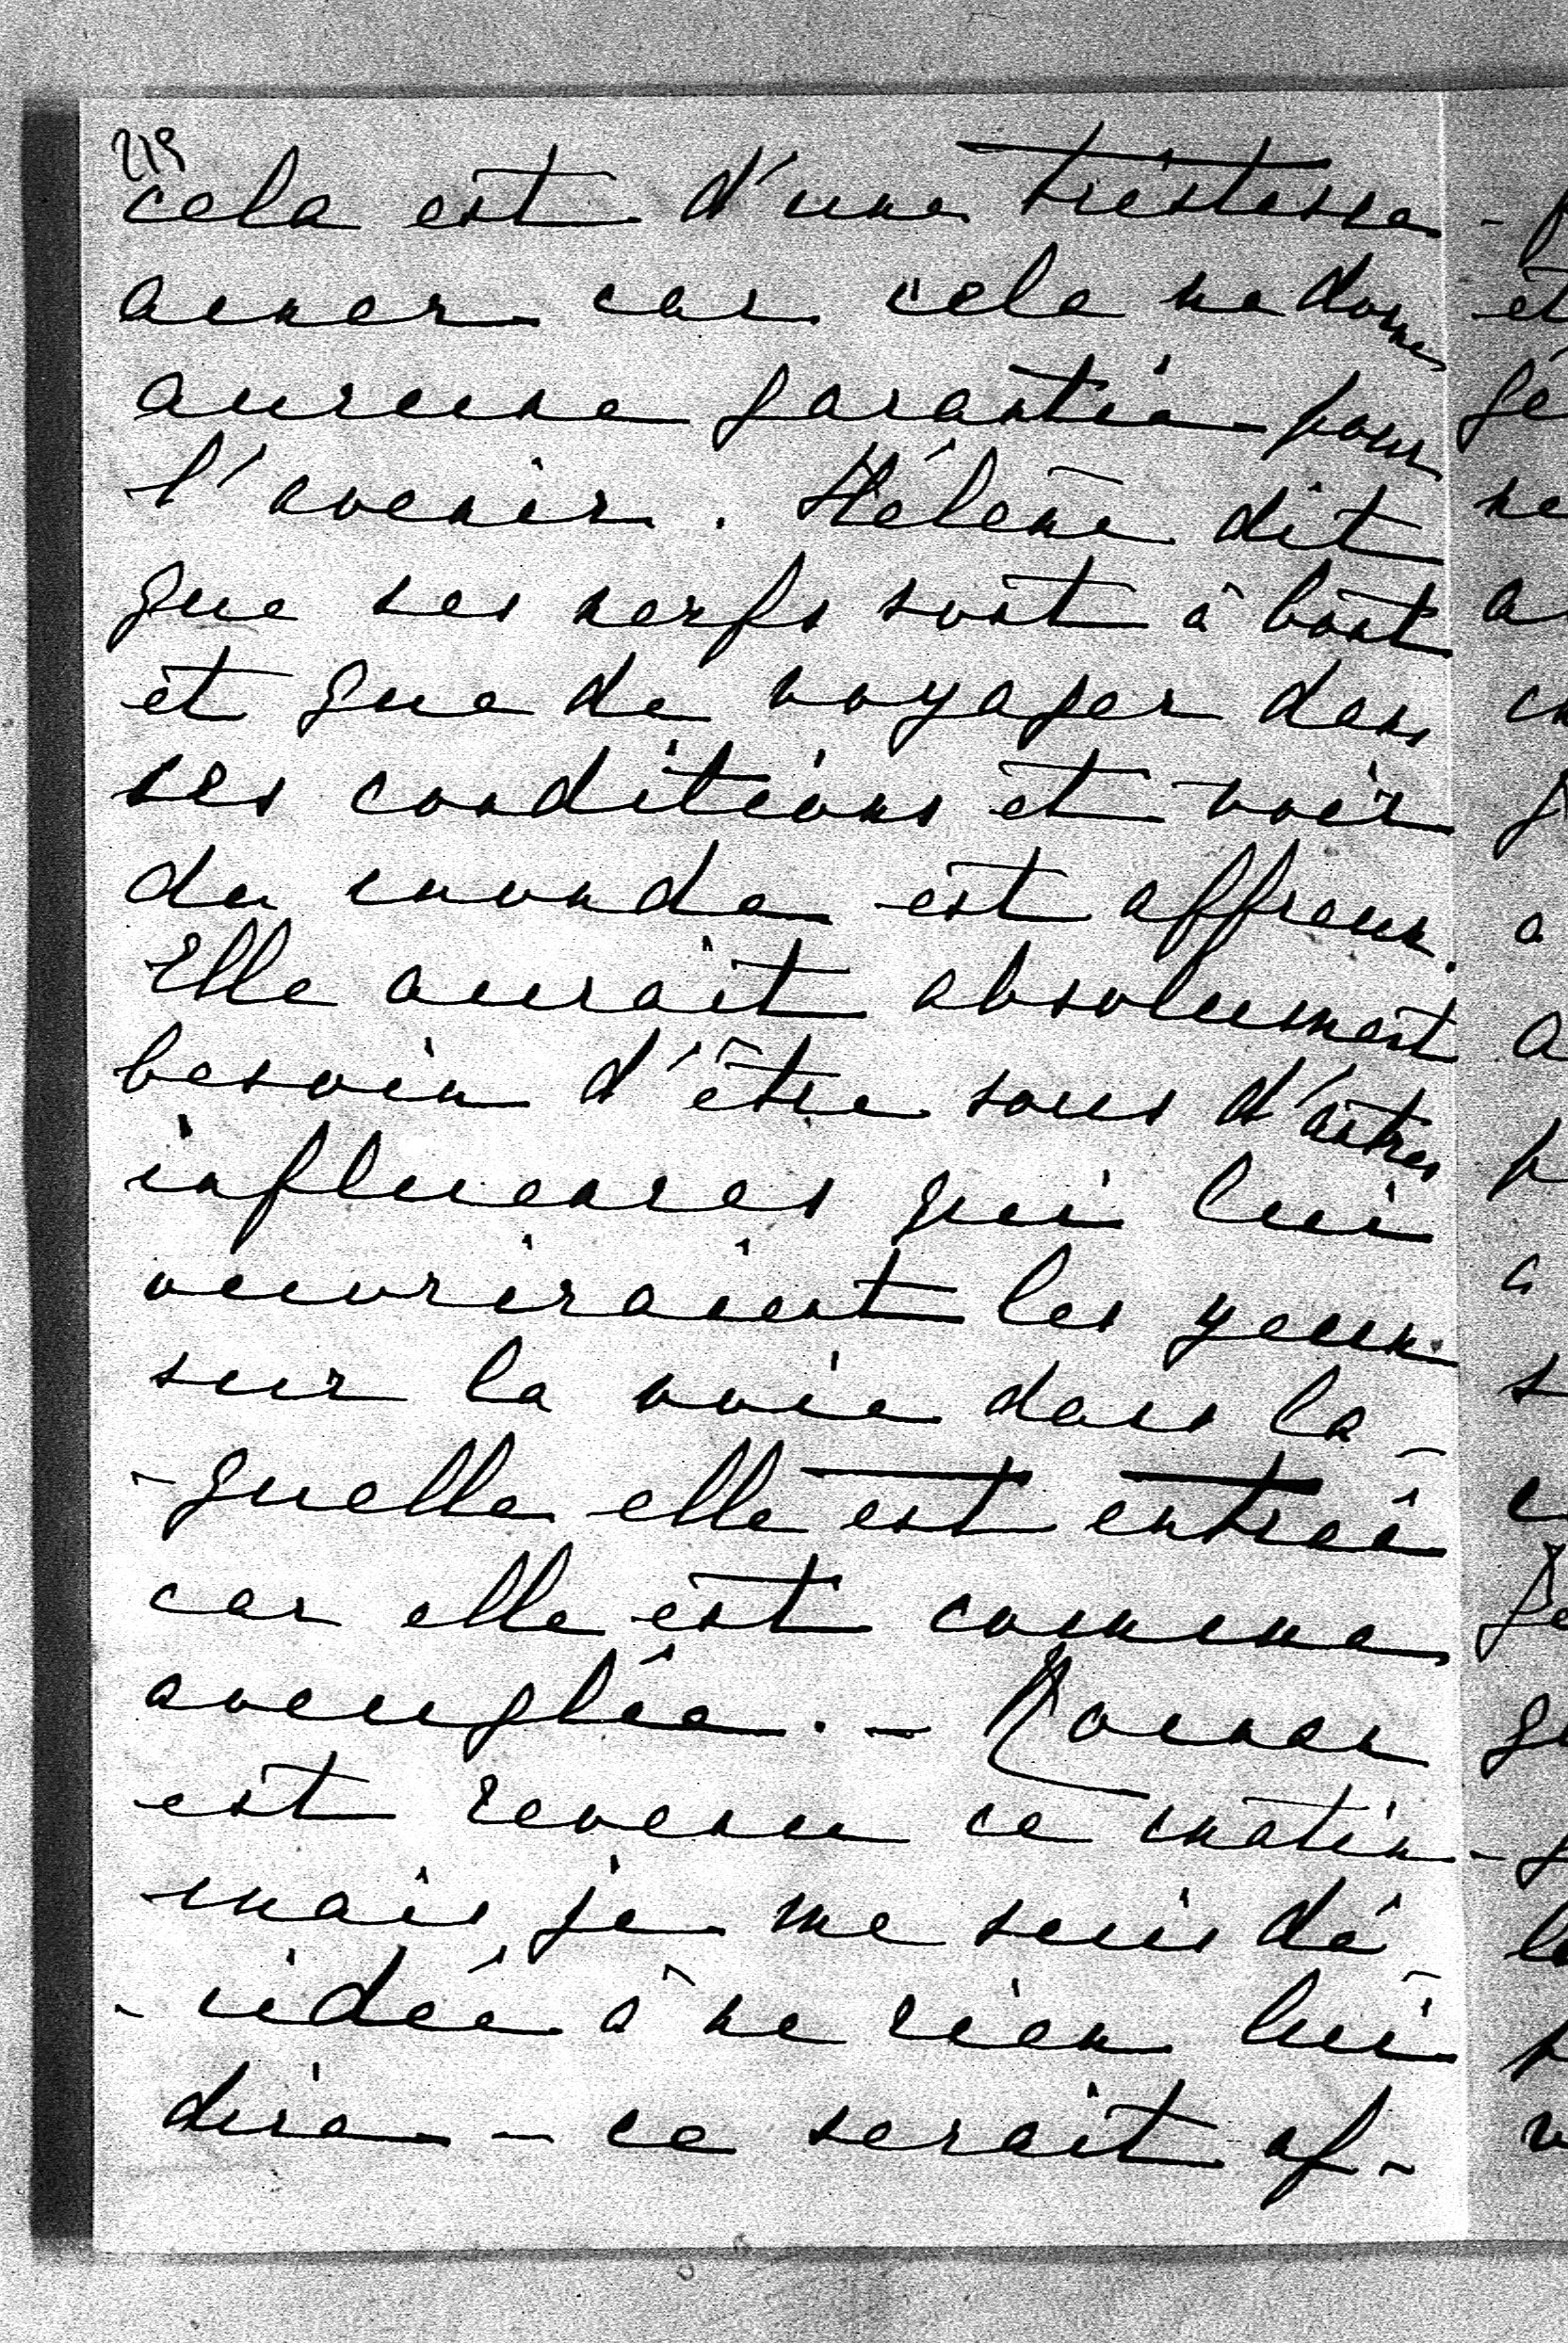 219
cela est d'une tristesse
amer car cela ne donne
aucune garantie pour
l'avenir. Hélène dit
que ses nerfs sont à bout
et que de voyager dans
ses conditions et voir
du monde est affreux.
Elle aurait absolument
besoin d'être sous d'autres
influences qui lui
ouvriraient les yeux
sur la voie dans la-
-quelle elle est entrée
car elle est comme
aveuglée. -
est revenu ce matin -
mais je me suis dé-
-cidée à ne rien lui
dire - ce serait af-